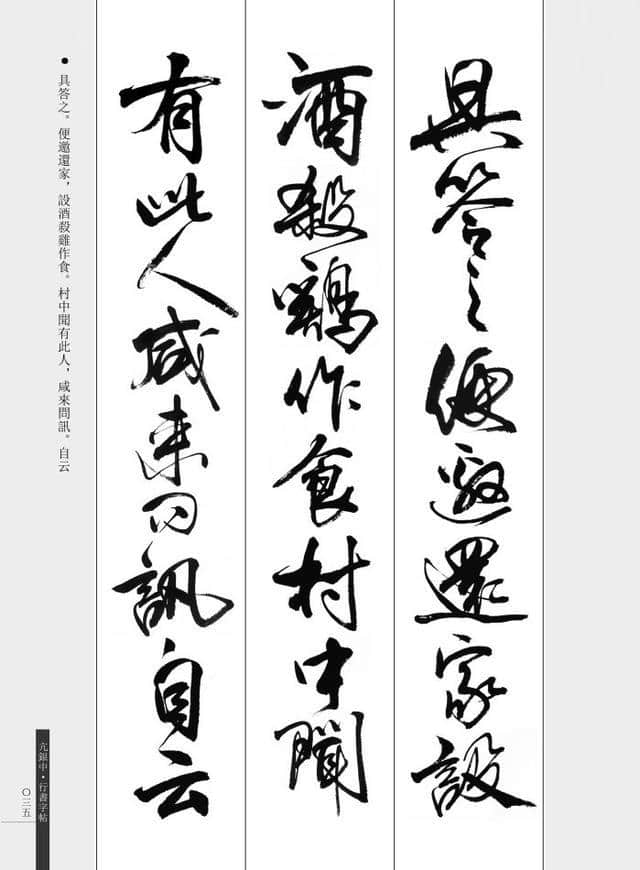 具答之便邀還家設
酒殺雞作食村中聞
有此人咸来問訊自云
具答之。便邀還家，設酒殺雞作食。村中聞有此人，咸來問訊。自云
亢銀中·行書字帖
〇三五